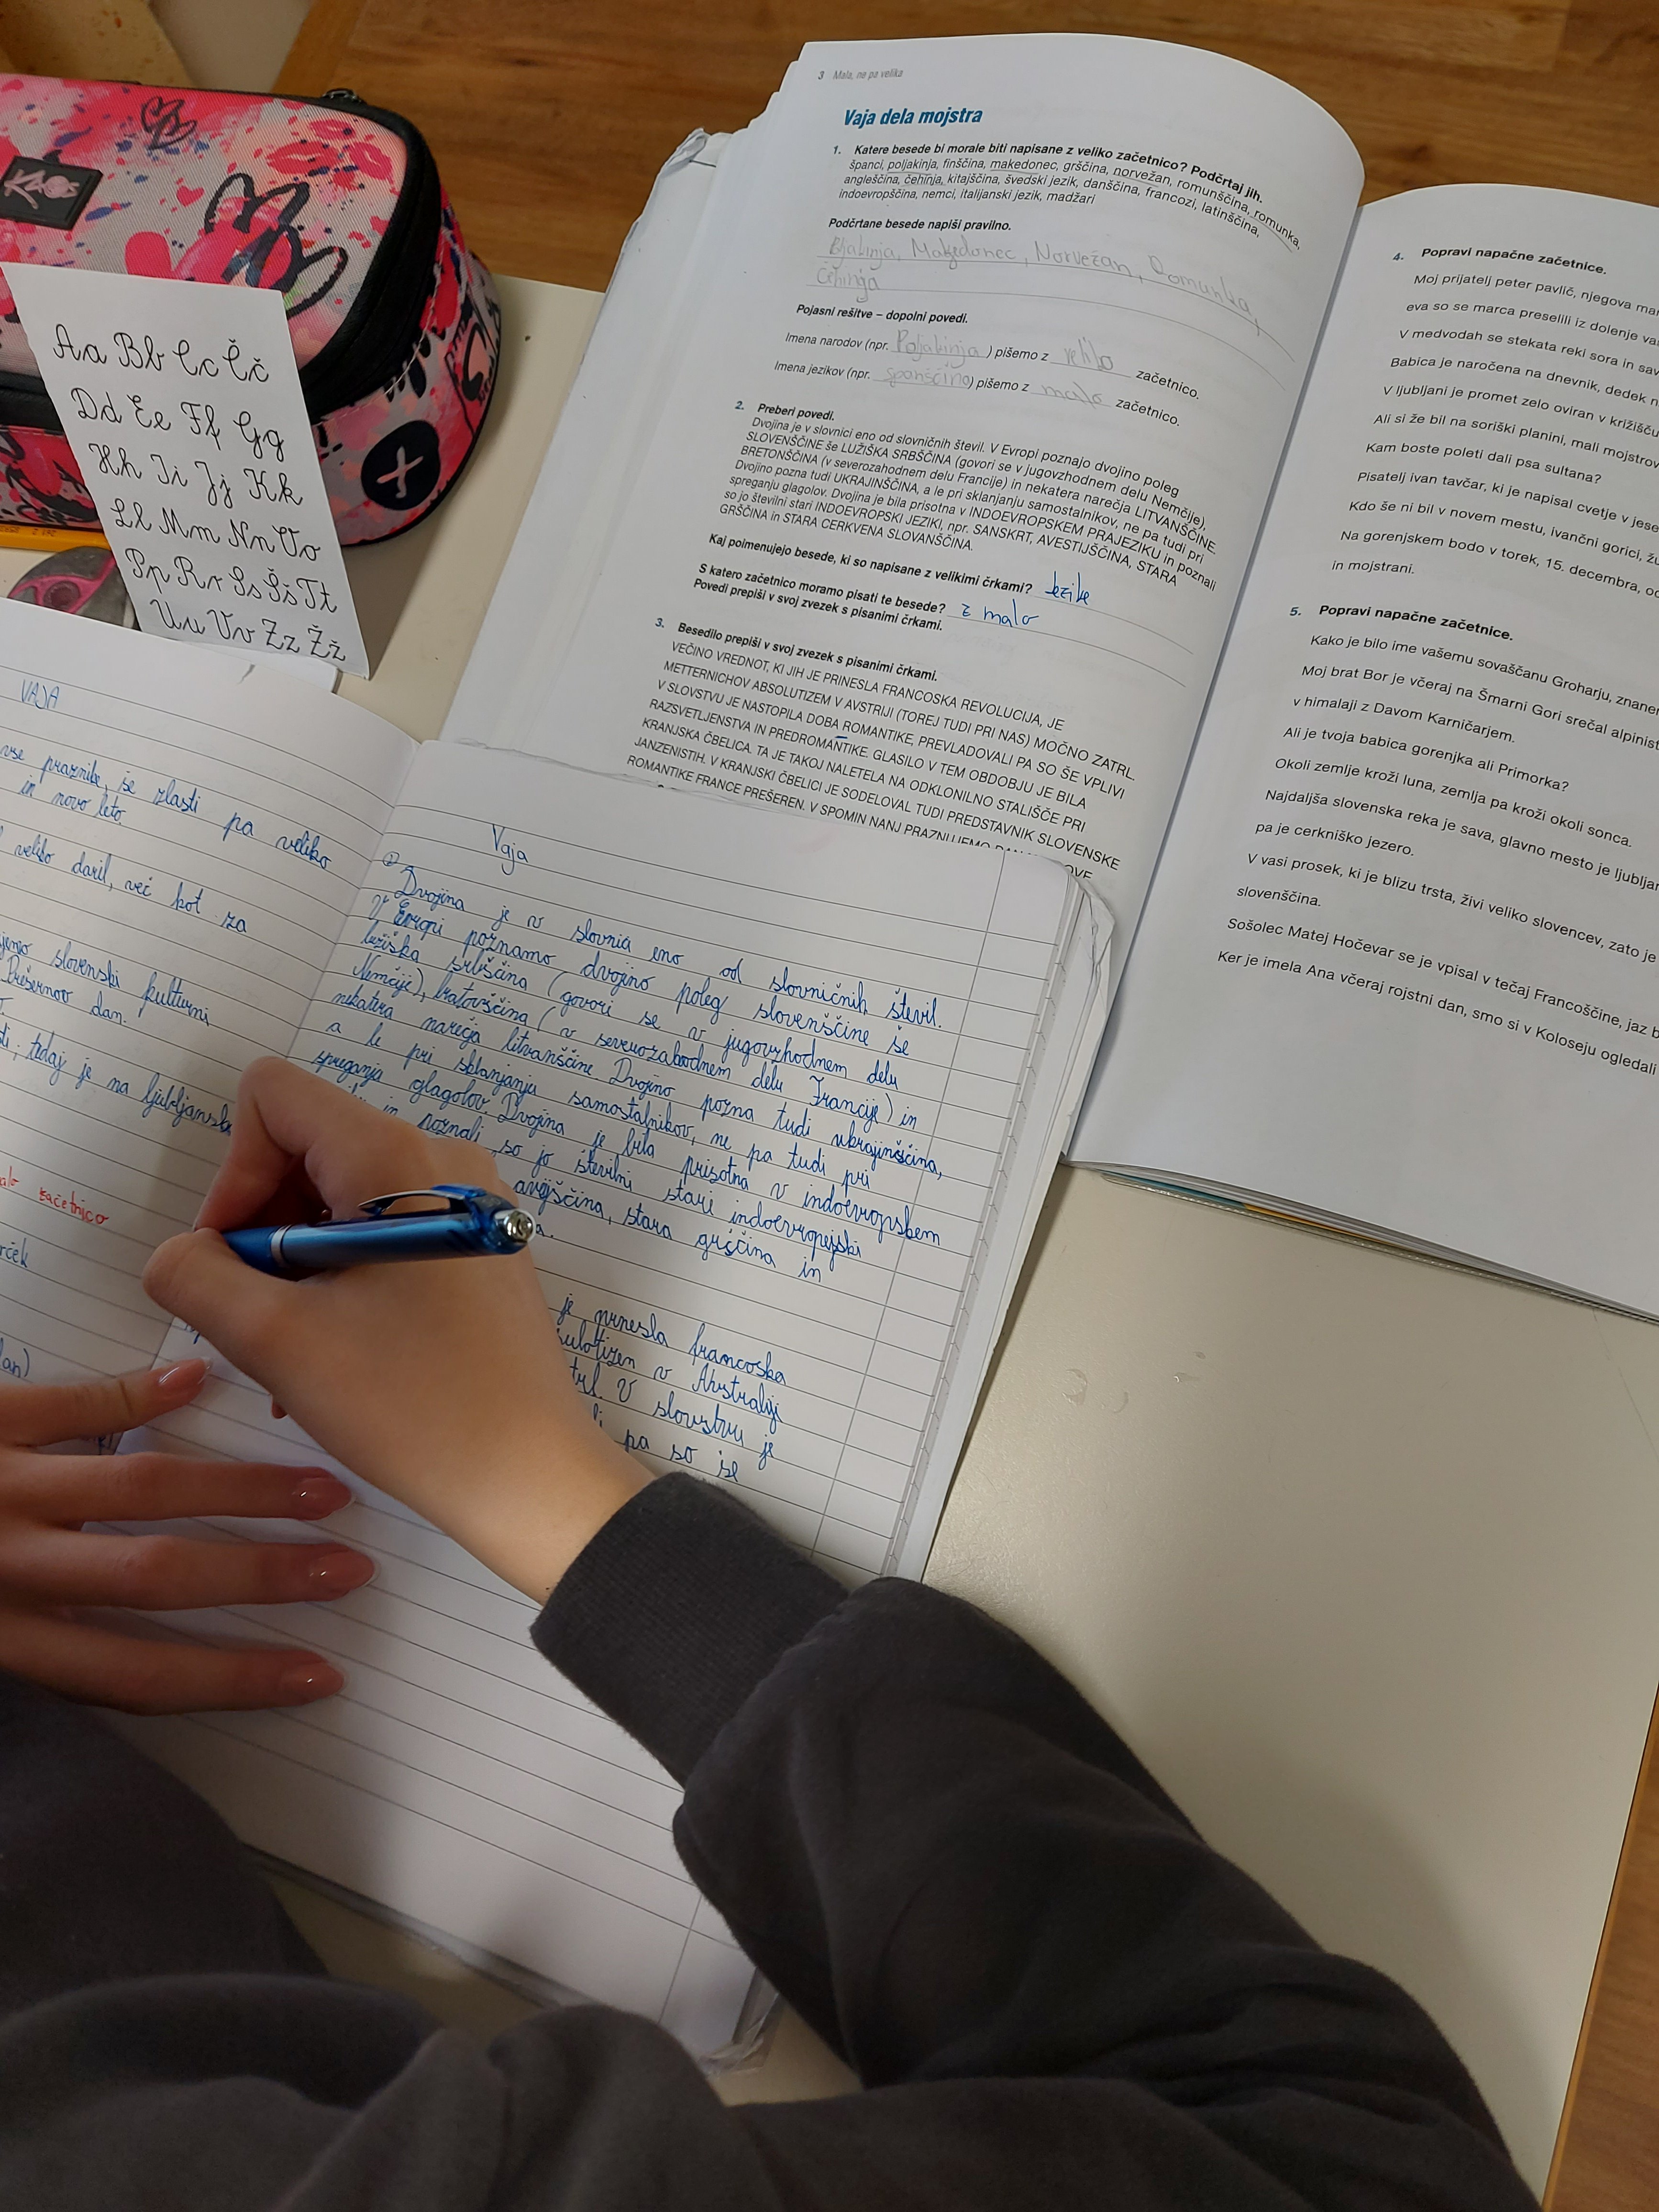 3 Mala, ne pa velika
Vaja dela mojstra
1. Katere besede bi morale biti napisane z veliko začetnico? Podčrtaj jih.
španci, poljakinja, finščina, makedonec, grščina, norvežan, romunščina, romunka,
angleščina, čehinja, kitajščina, švedski jezik, danščina, francozi, latinščina,
indoevropščina, nemci, italijanski jezik, madžari
Podčrtane besede napiši pravilno.
Makedonec, Norvežan, Romunka,
Čehinja
Pojasni rešitve – dopolni povedi.
Imena narodov (npr. Poljakinja ) pišemo z veliko začetnico.
Imena jezikov (npr. španščina) pišemo z malo začetnico.
2. Preberi povedi.
Dvojina je v slovnici eno od slovničnih števil. V Evropi poznajo dvojino poleg
SLOVENŠČINE še LUŽIŠKA SRBŠČINA (govori se v jugovzhodnem delu Nemčije),
BRETONŠČINA (v severozahodnem delu Francije) in nekatera narečja LITVANŠČINE.
Dvojino pozna tudi UKRAJINŠČINA, a le pri sklanjanju samostalnikov, ne pa tudi pri
spreganju glagolov. Dvojina je bila prisotna v INDOEVROPSKEM PRAJEZIKU in poznali
so jo številni stari INDOEVROPSKI JEZIKI, npr. SANSKRT, AVESTIJŠČINA, STARA
GRŠČINA in STARA CERKVENA SLOVANŠČINA.
Kaj poimenujejo besede, ki so napisane z velikimi črkami? Jezike
S katero začetnico moramo pisati te besede? z malo
Povedi prepiši v svoj zvezek s pisanimi črkami.
3. Besedilo prepiši v svoj zvezek s pisanimi črkami.
VEČINO VREDNOT, KI JIH JE PRINESLA FRANCOSKA REVOLUCIJA, JE
METTERNICHOV ABSOLUTIZEM V AVSTRIJI (TOREJ TUDI PRI NAS) MOČNO ZATRL.
V SLOVSTVU JE NASTOPILA DOBA ROMANTIKE, PREVLADOVALI PA SO ŠE VPLIVI
RAZSVETLJENSTVA IN PREDROMANTIKE. GLASILO V TEM OBDOBJU JE BILA
KRANJSKA ČBELICA. TA JE TAKOJ NALETELA NA ODKLONILNO STALIŠČE PRI
JANZENISTIH. V KRANJSKI ČBELICI JE SODELOVAL TUDI PREDSTAVNIK SLOVENSKE
ROMANTIKE FRANCE PREŠEREN. V SPOMIN NANJ PRAZNUJEMO
4. Popravi napačne začetnice.
Moj prijatelj peter pavlič, njegova
eva so se marca preselili iz dolenje
V medvodah se stekata reki sora in
Babica je naročena na dnevnik, dedek
V ljubljani je promet zelo oviran v
Ali si že bil na soriški planini, mali
Kam boste poleti dali psa sultana?
Pisatelj ivan tavčar, ki je napisal cvetje v
Kdo še ni bil v novem mestu, ivančni gorici,
Na gorenjskem bodo v torek, 15. decembra,
in mojstrani.
5. Popravi napačne začetnice.
Kako je bilo ime vašemu sovaščanu Groharju,
Moj brat Bor je včeraj na Šmarni Gori srečal
v himalaji z Davom Karničarjem.
Ali je tvoja babica gorenjka ali Primorka?
Okoli zemlje kroži luna, zemlja pa kroži okoli sonca.
Najdaljša slovenska reka je sava, glavno mesto je
pa je cerkniško jezero.
V vasi prosek, ki je blizu trsta, živi veliko slovencev, zato je
slovenščina.
Sošolec Matej Hočevar se je vpisal v tečaj Francoščine, jaz
Ker je imela Ana včeraj rojstni dan, smo si v Koloseju ogledali
Aa Bb Cc Čč
Dd Ee Ff Gg
Hh Ii Jj Kk
Ll Mm Nn Oo
Pp Rr Ss Šš Tt
Uu Vv Zz Žž
VAJA
vse praznike, še zlasti pa veliko
in novo leto.
veliko daril, več kot za
slovenski kulturni
Prešernov dan.
tedaj je na
začetnico
Vaja
2 Dvojina je v slovnici eno od slovničnih števil.
V Evropi poznamo dvojino poleg slovenščine še
lužiška srbščina (govori se v jugovzhodnem delu
Nemčije), bratovščina (v severozahodnem delu Francije) in
nekatera narečja litvanščine. Dvojino pozna tudi ukrajinščina,
a le pri sklanjanju samostalnikov, ne pa tudi pri
spreganju glagolov. Dvojina je bila prisotna v indoevropskem
in poznali so jo številni stari indoevropejski
stara grščina in
je prinesla francoska
v Avstraliji
V slovstvu je
pa so še